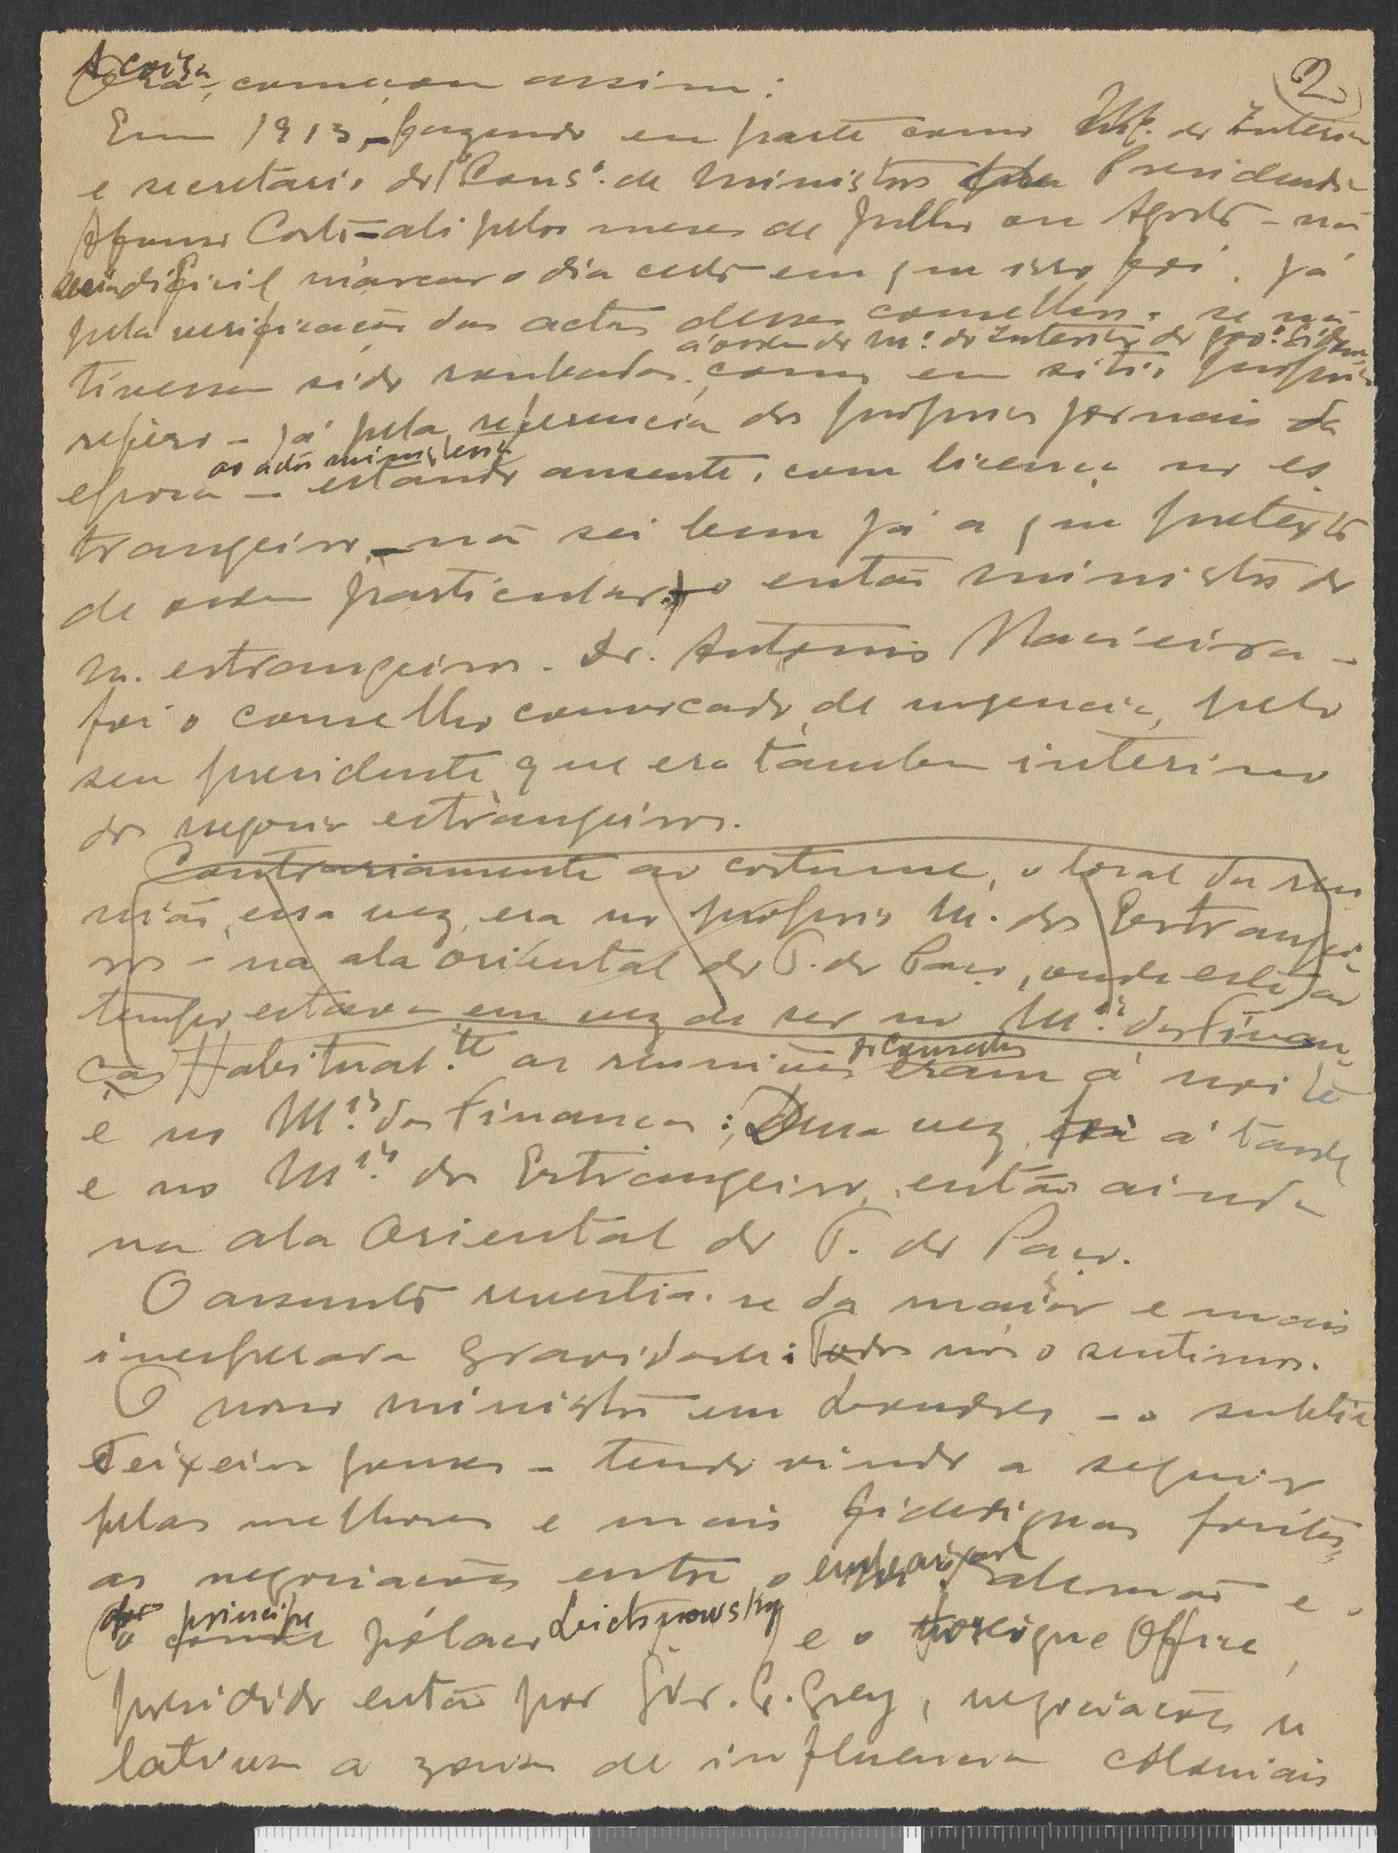 A coisa começou assim:
2
Em 1913, fazendo eu parte como M.º do Interior
e secretario do Cons.º de Ministros Presidencia
Afonso Costa – ali pelos meses de Julho ou Agosto – não
seria dificil marcar o dia certo em que isso foi. já
pela verificação das actas desses conselhos, se não
á ordem do M.º do Interior do gov.º Sidon.
tivessem sido roubadas, como em sitio proprio
refiro – já pela referencia dos proprios jornais da
ao acto ministerial
epoca – estando ausente, com licença no es
trangeiro – não sei bem já a que pretexto
de ordem particular, o então ministro de
n. estrangeiros. Dr. Antonio Macieira –
foi o conselho convocado, de urgencia, pelo
seu presidente que era tambem interino
dos negocios estrangeiros.
Contrariamente ao costume, o local da reu
nião, essa vez, era no proprio M. dos Estrangei
ros – na ala oriental do T. do Paço, onde este ao
tempo estava em vez de ser no M.º das Finan
ças Habitual.te as reuniões de conselho eram á noite
e no M.º das Finanças; Duma vez foi á tarde
e no M.º dos Estrangeiros, então ainda
na ala Oriental do T. do Paço.
O assunto revestia-se da maior e mais
inesperada gravidade: Todos nós o sentimos.
O nosso ministro em Londres – o subtil
Teixeira Gomes – tendo vindo a seguir
pelas melhores e mais fidedignas fontes,
as negociações entre o embaixador alemão e o
(o principe pólaco Leichnowsky) e o Foreigne Office,
presidido então por Sir. E. Grey, negociações re
lativas a zonas de influencia coloniais